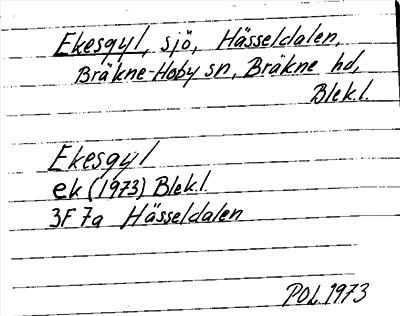 Ekesgyl, sjö, Hässeldalen,
Bräkne-Hoby sn, Bräkne hd,
Blek.l.
Ekesgyl
ek (1973) Blek.l.
3F 7a Hässeldalen
POL 1973